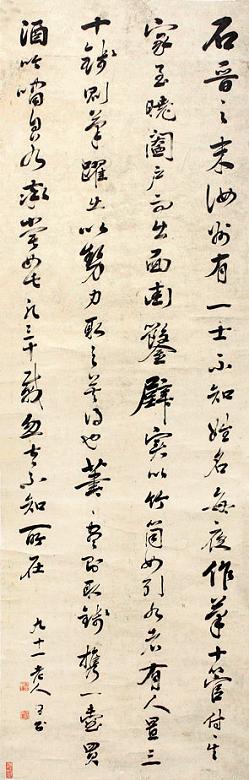 石晋之末汝州有一士不知姓名每夜作筆十管付其
家至曉闔戶而出面街鑿壁実以竹筒如引水者有人置三
十錢則筆躍出以勢力取之莫得也筆盡即取錢攜一壺買
酒吟嘯自嘗如此凡三十載忽去不知所在
九十一老人